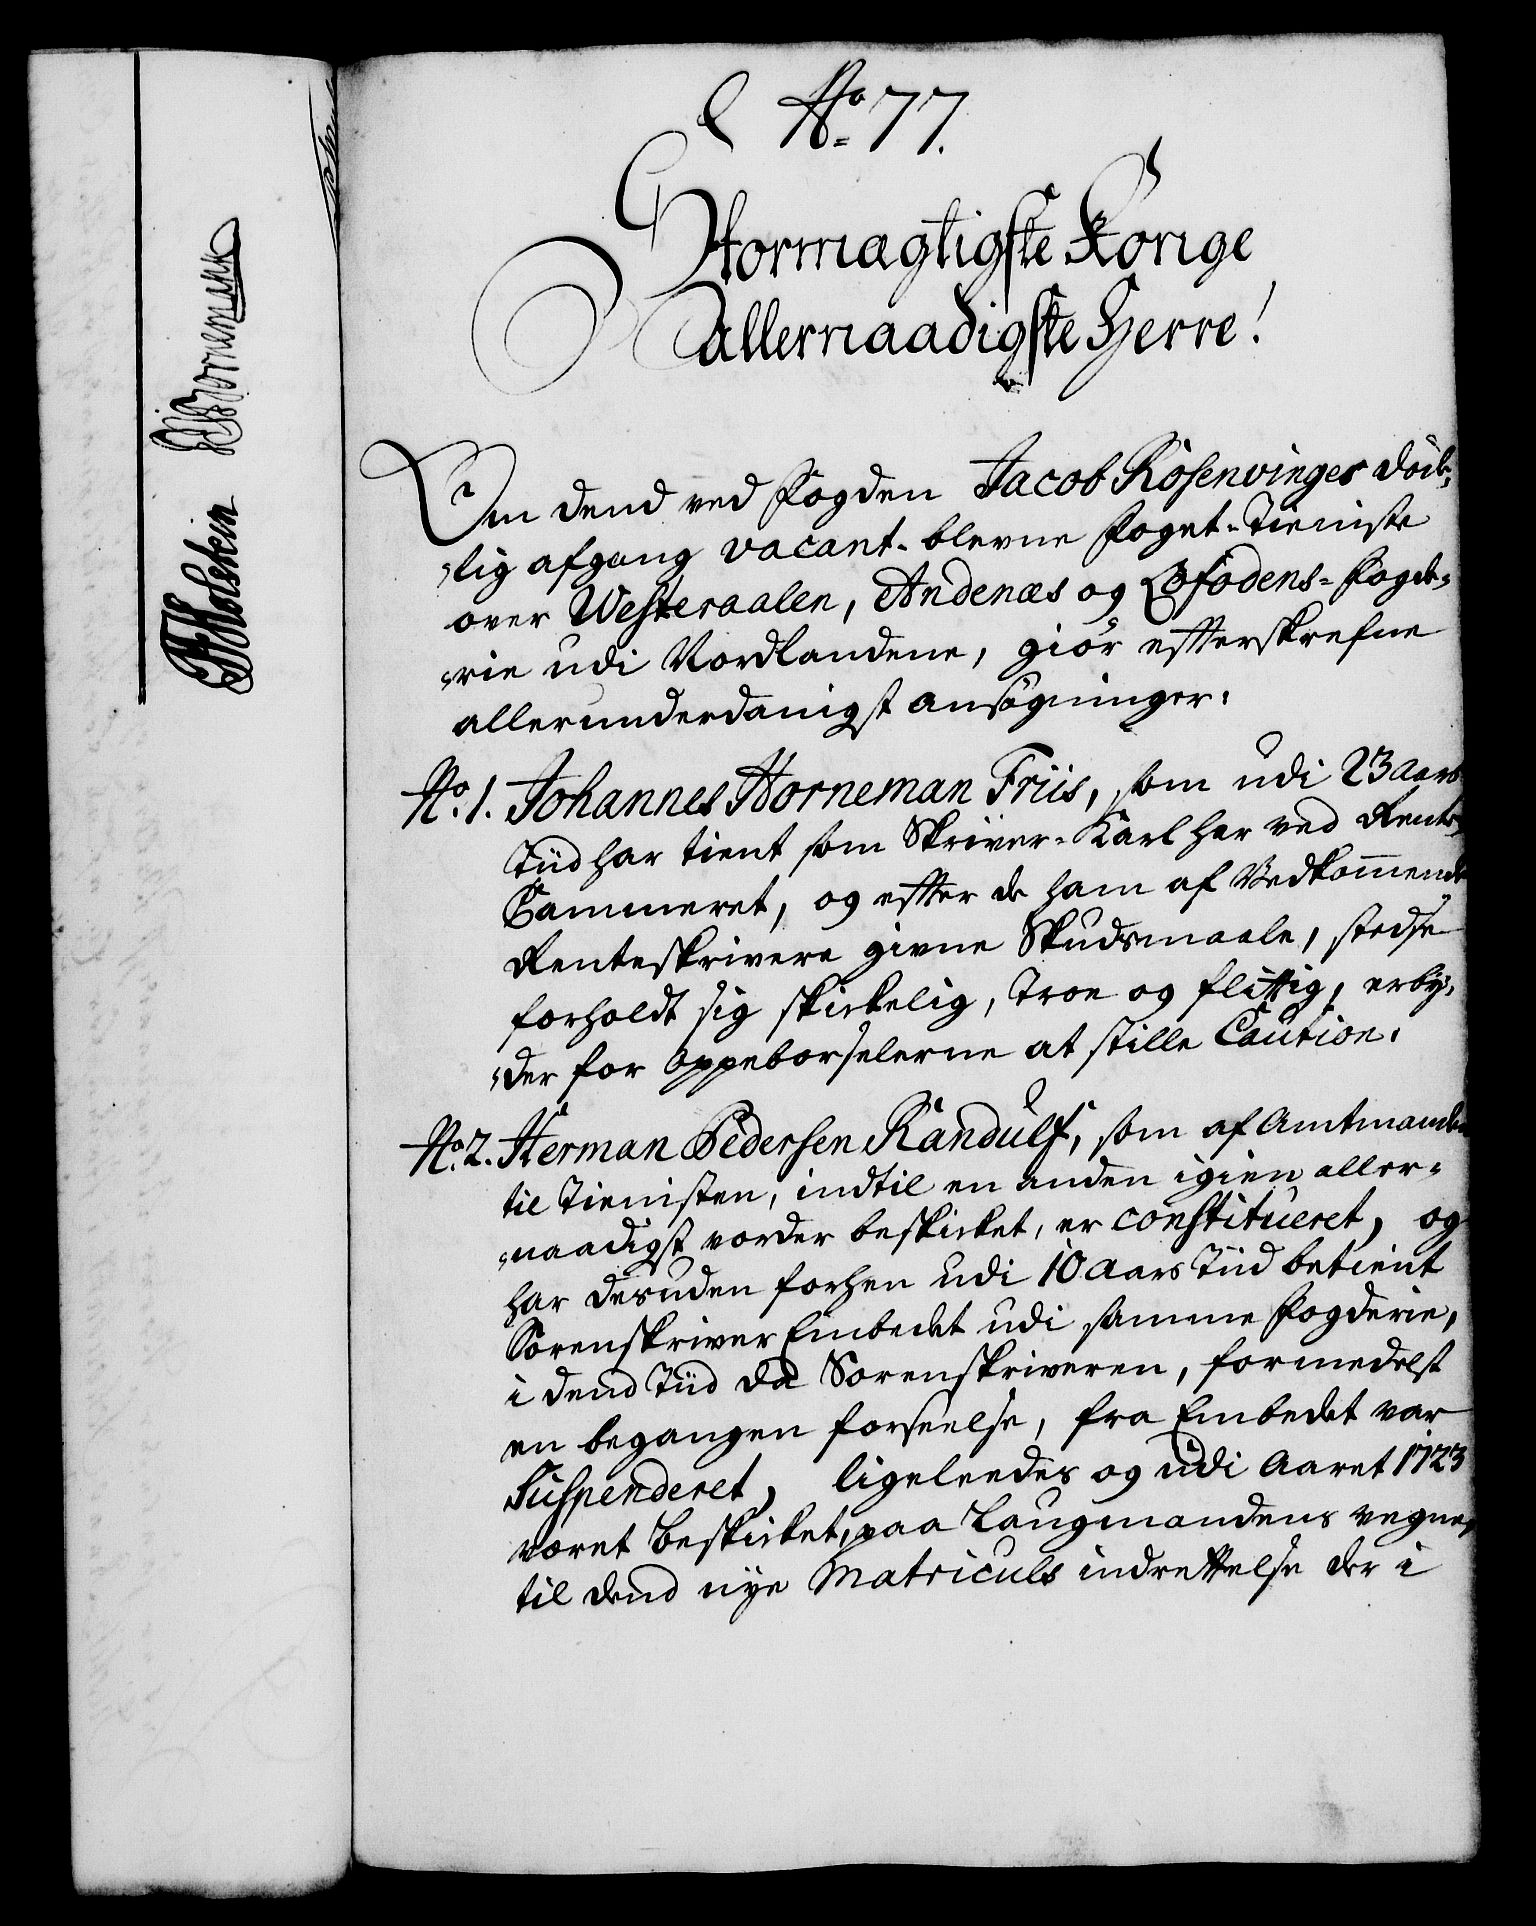 No. 77.
Stormægtigste Konge
allernaadigste Herre!
Om dend ved Fogden Jacob Rosenvinges død-
lig afgang vacant-blevne Foget-Tieniste
over Westeraalen, Andenæs og Lofodens-Fogde-
rie udi Nordlandene, giør efterskrefne
allerunderdanigst ansøgninger.
No. 1. Johannes Horneman Friis, som udi 23 aars
Tiid har tient som Skriver-Karl her ved Rente-
Cammeret, og efter de ham af Vedkommende
Renteskrivere givne Skudsmaale, stedse
forholdt sig skikkelig, troe og flittig, erby-
der for Oppeborselerne at stille Caution.
No. 2. Herman Pedersen Randulf, som af Amtmanden
til Tienisten, indtil en anden igien aller-
naadigst vorder beskikket, er constitueret, og
har desuden forhen udi 10 aars Tiid betient
Sorenskriver Embedet udi samme Fogderie,
i dend Tiid da Sorenskriveren, formedelst
en begangen forseelse, fra Embedet var
Suspenderet, ligeleedes og udi Aaret 1723
været beskikket, paa Laugmandens vegne,
til dend nye Matriculs indrettelse der i
Horneman
Holstein